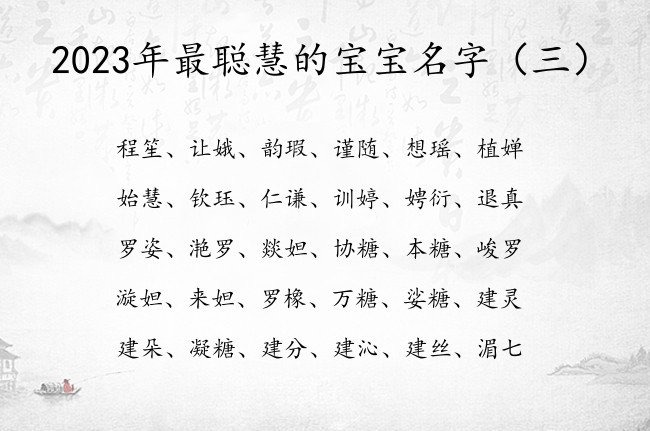 2023年最聪慧的宝宝名字（三）
程笙、让娥、韵瑕、谨随、想瑶、植婵
始慧、钦珏、仁谦、训婷、娉衍、退真
罗姿、滟罗、燚妲、协糖、本糖、峻罗
漩妲、来妲、罗橡、万糖、娑糖、建灵
建朵、凝糖、建分、建沁、建丝、湄七